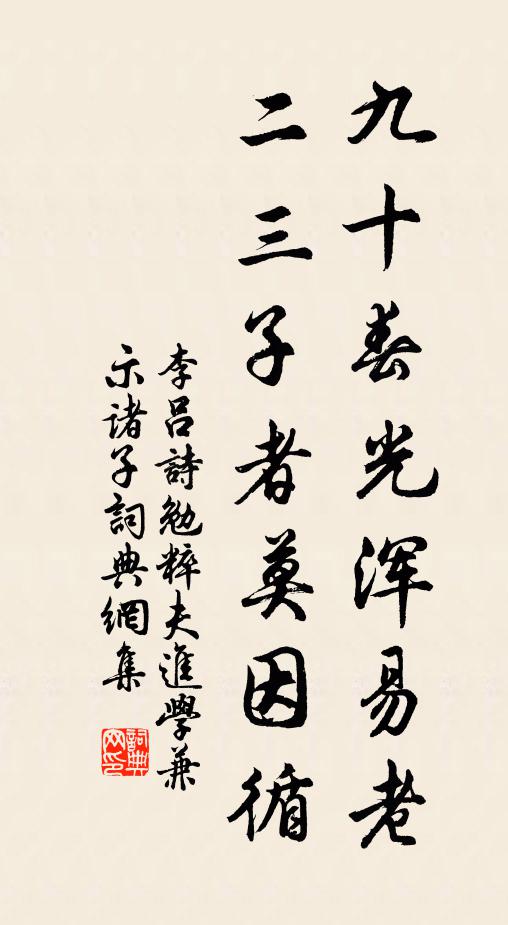 九十春光浑易老
二三子者莫因循
李吕詩勉粹夫進學兼
示诸子詞典網集
詞典网印